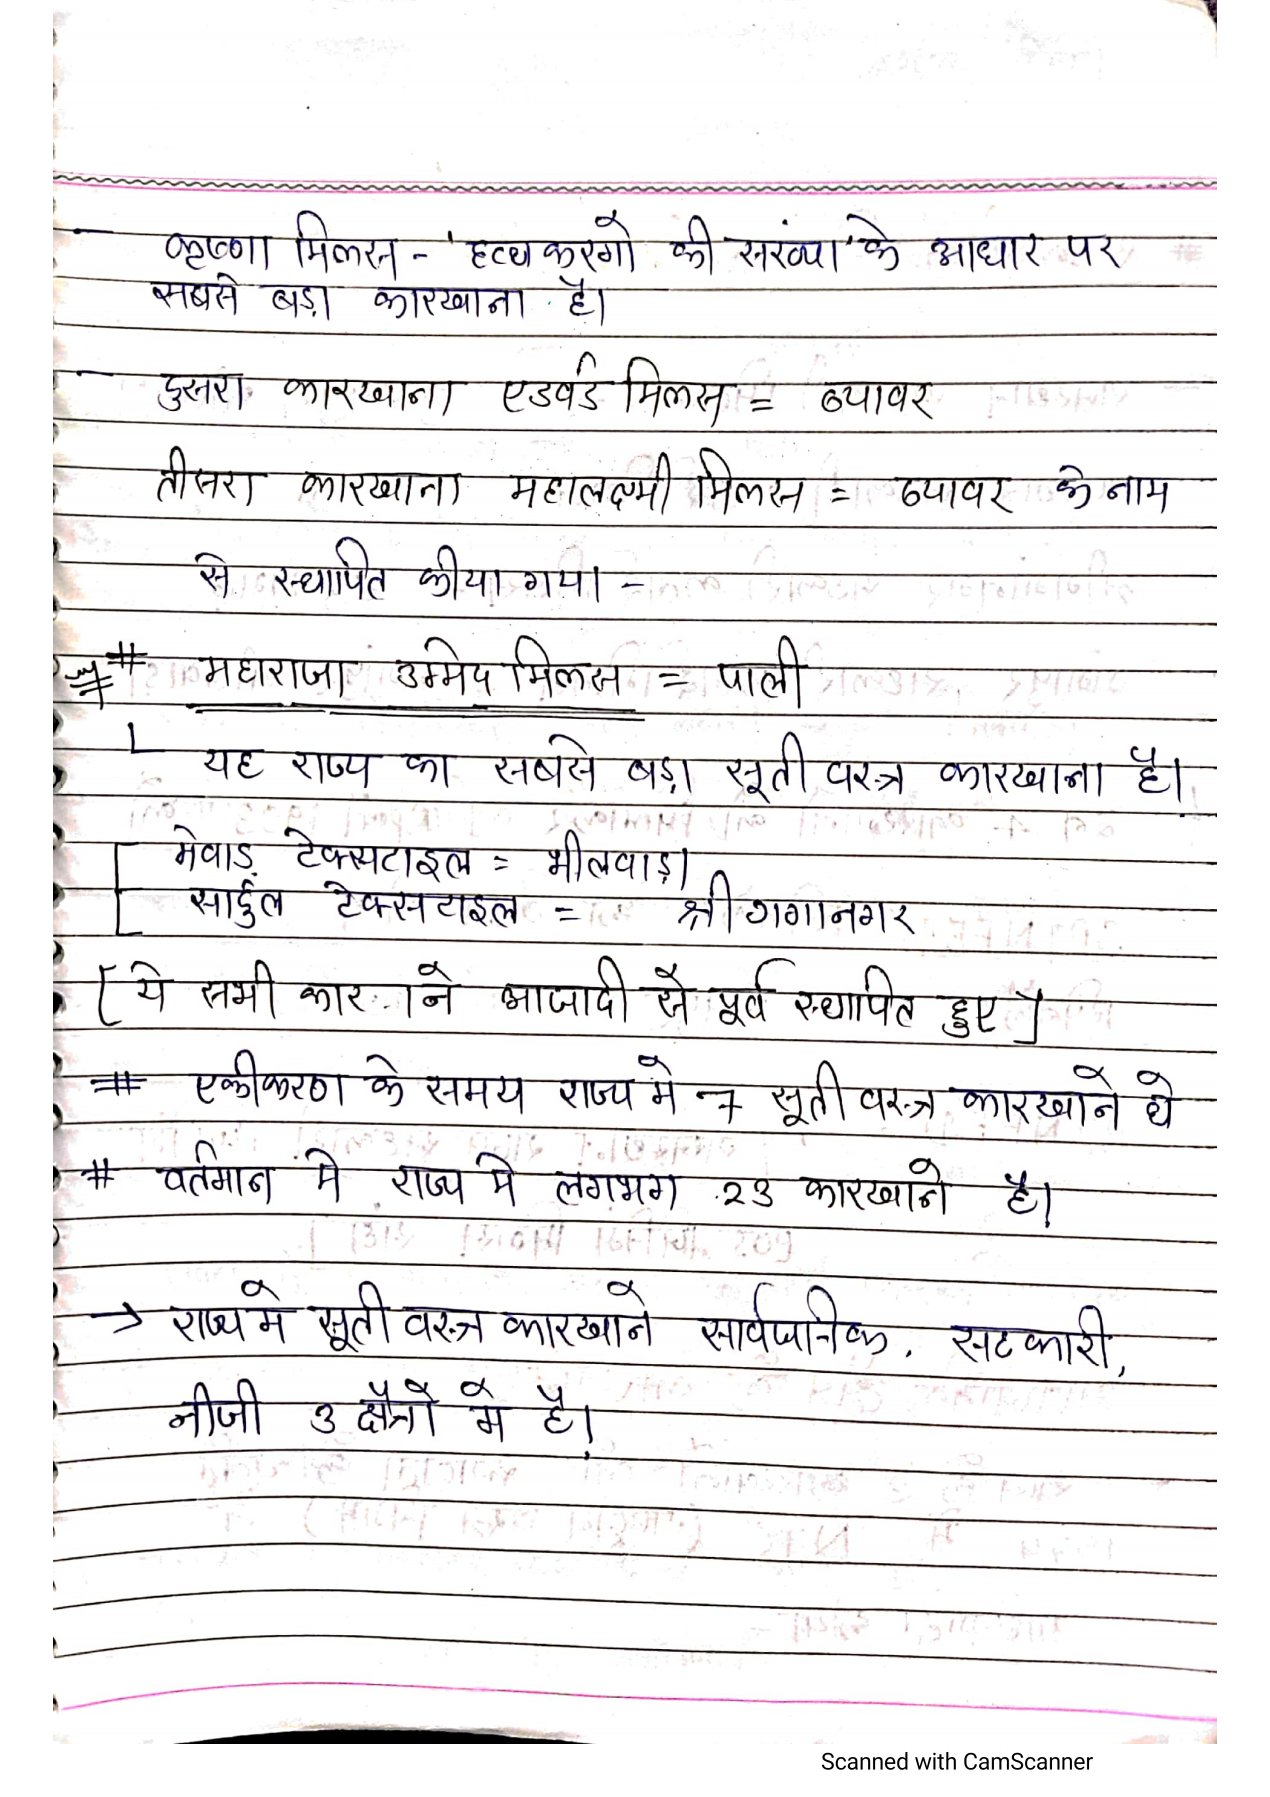 - कृष्णा मिल्स - 'हत्थ करगो की सरंव्या' के आधार पर
सबसे बड़ा कारखाना है।
- दुसरा कारखाना एडवर्ड मिलस = ब्यावर
तीसरा कारखाना महालक्ष्मी मिलस = ब्यावर के नाम
से स्थापित कीया गया -
# महाराजा उम्मेद मिलस = पाली
यह राज्य का सबसे बड़ा सूती वस्त्र कारखाना है।
[ मेवाड़ टेक्सटाइल = भीलवाड़ा
सार्दुल टेक्सटाइल = श्री गगानगर
[ ये सभी कार ाने आजादी से पूर्व स्थापित हुए ]
# एकीकरण के समय राज्य मे 7 सूती वस्त्र कारखाने थे
# वर्तमान मे राज्य मे लगभग 23 कारखाने है।
→ राज्य मे सूती वस्त्र कारखाने सार्वजनिक, सहकारी,
नीजी 3 क्षैत्रो मे है।
Scanned with CamScanner